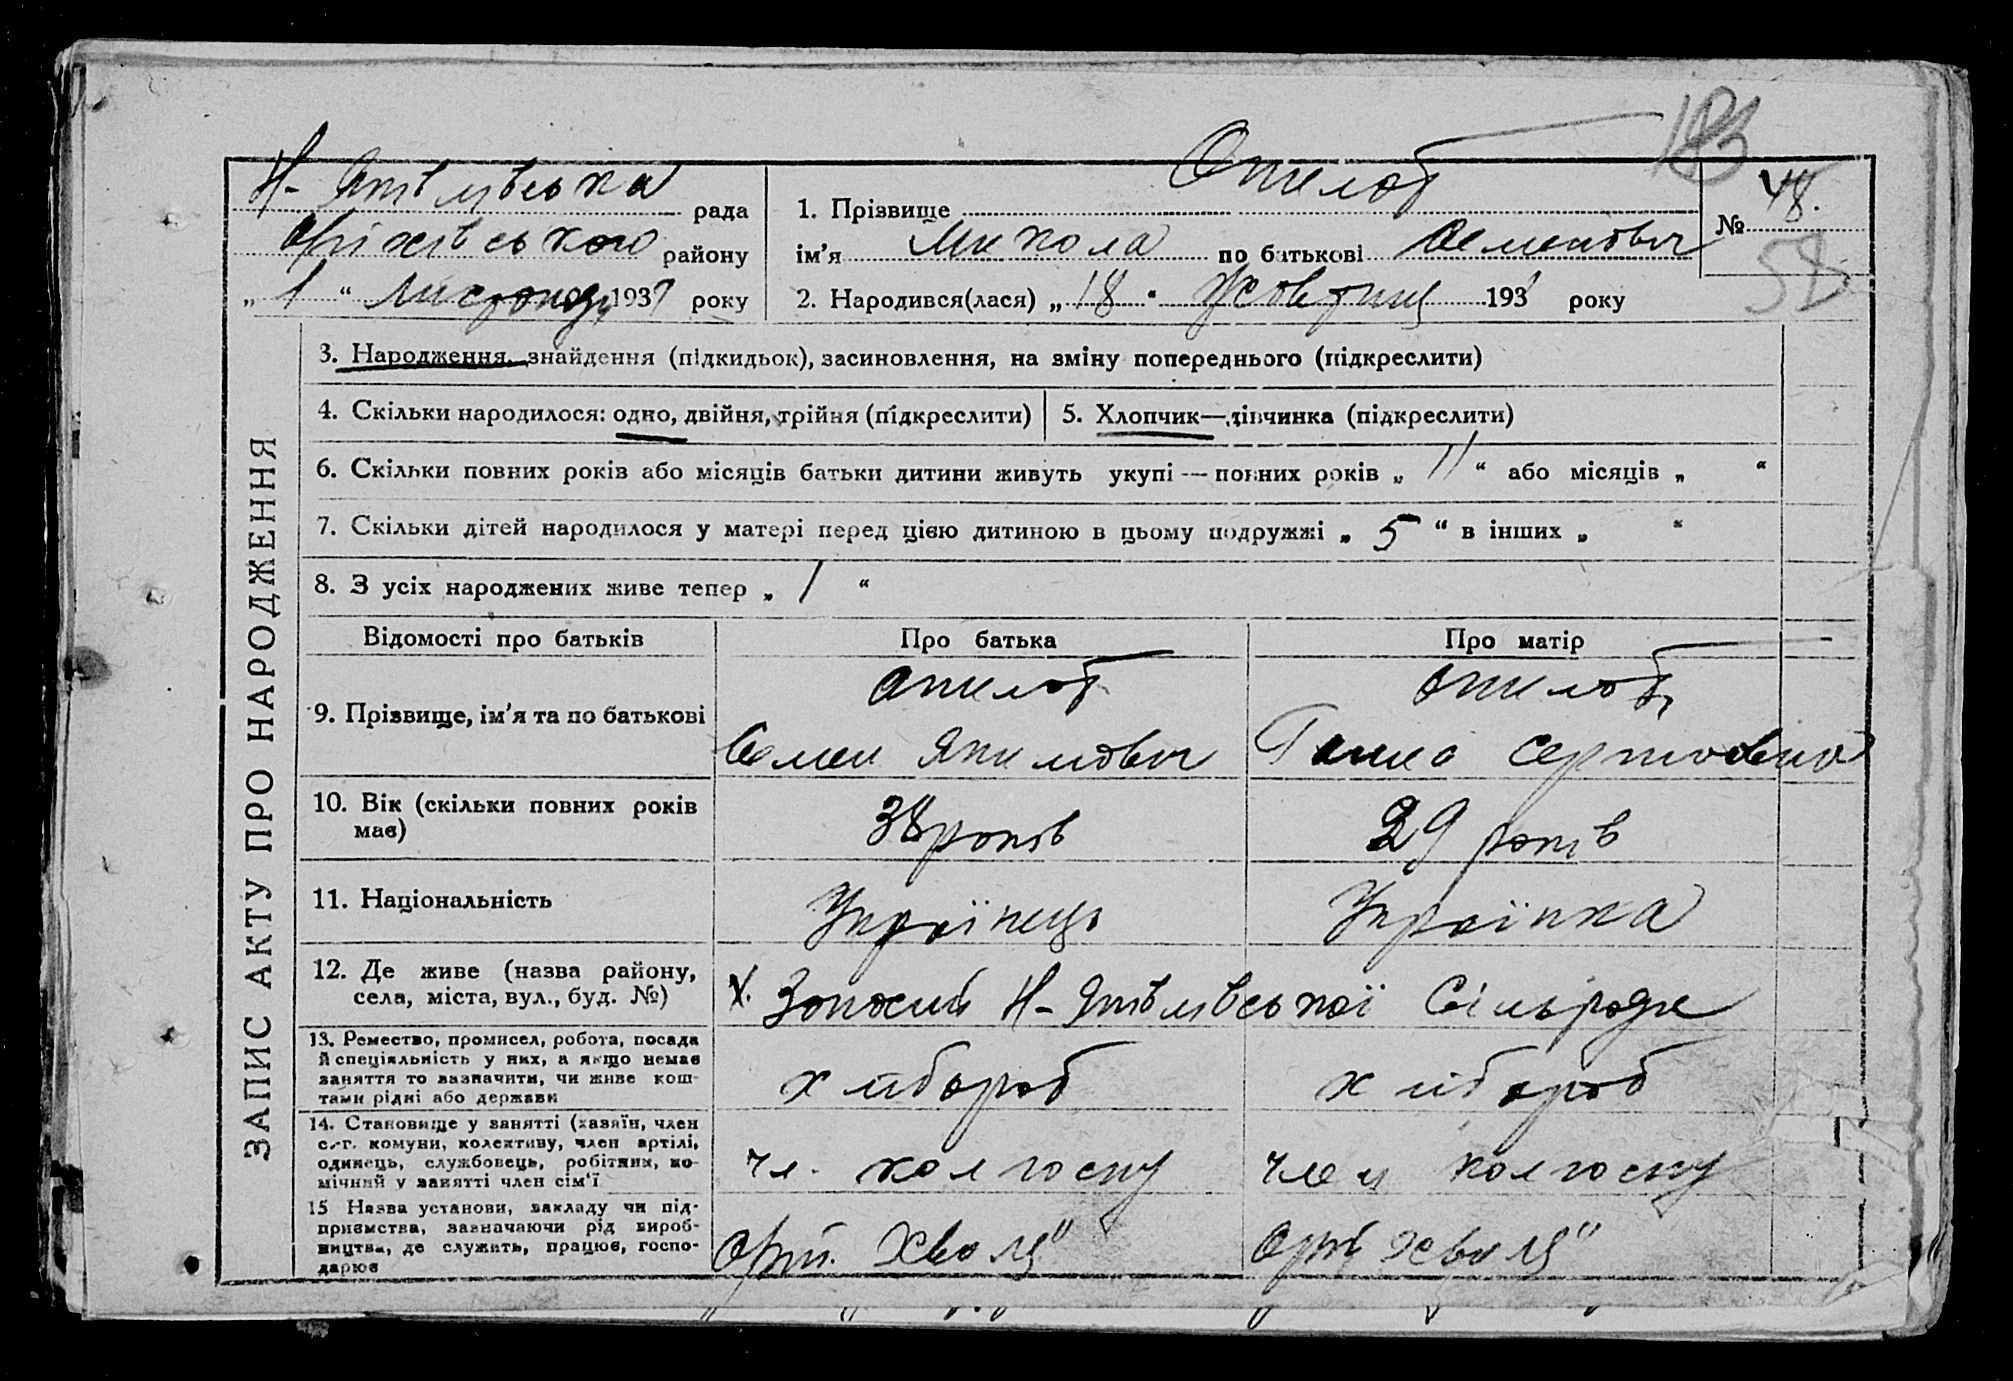 183
Н- Яківлівська рада
Оріхівського району
„ 1 “ Листопада 1937 року
1. Прізвище Опилат
ім’я Микола по батькові Семенович
2. Народився(лася) „ 18 “ Жовтня 193 року
№ 48.
ЗАПИС АКТУ ПРО НАРОДЖЕННЯ
3. Народження, знайдення (підкидьок), засиновлення, на зміну попереднього (підкреслити)
4. Скільки народилося: одно, двійня, трійня (підкреслити)
5. Хлопчик—дівчинка (підкреслити)
6. Скільки повних років або місяців батьки дитини живуть укупі — повних років „ 11 “ або місяців „ “
7. Скільки дітей народилося у матері перед цією дитиною в цьому подружжі „ 5 “ в інших „ “
8. З усіх народжених живе тепер „ 1 “
Відомості про батьків Про батька Про матір
9. Прізвище, ім’я та по батькові
Опилат
Семен Якимович
Опилат
Ганна
10. Вік (скільки повних років має)
38 років
29 років
11. Національність
Українець
Українка
12. Де живе (назва району,
села, міста, вул., буд. №)
х. Н- Яківлівської Сільради
13. Ремество, промисел, робота, посада
й спеціяльність у них, а якщо немає
заняття то вазначити, чи живе кош-
тами рідні або держави
хлібороб
хлібороб
14. Становище у занятті (хазяїн, член
с.-г. комуни, колективу, член артілі,
одинець, службовець, робітник, по-
мічний у занятті член сім’ї
чл. колгоспу
член колгоспу
15 Назва установи, закладу чи під-
приємства, зазначаючи рід вироб-
ництва, де служить, працює, госпо-
дарює
Хвиля"
Хвиля"